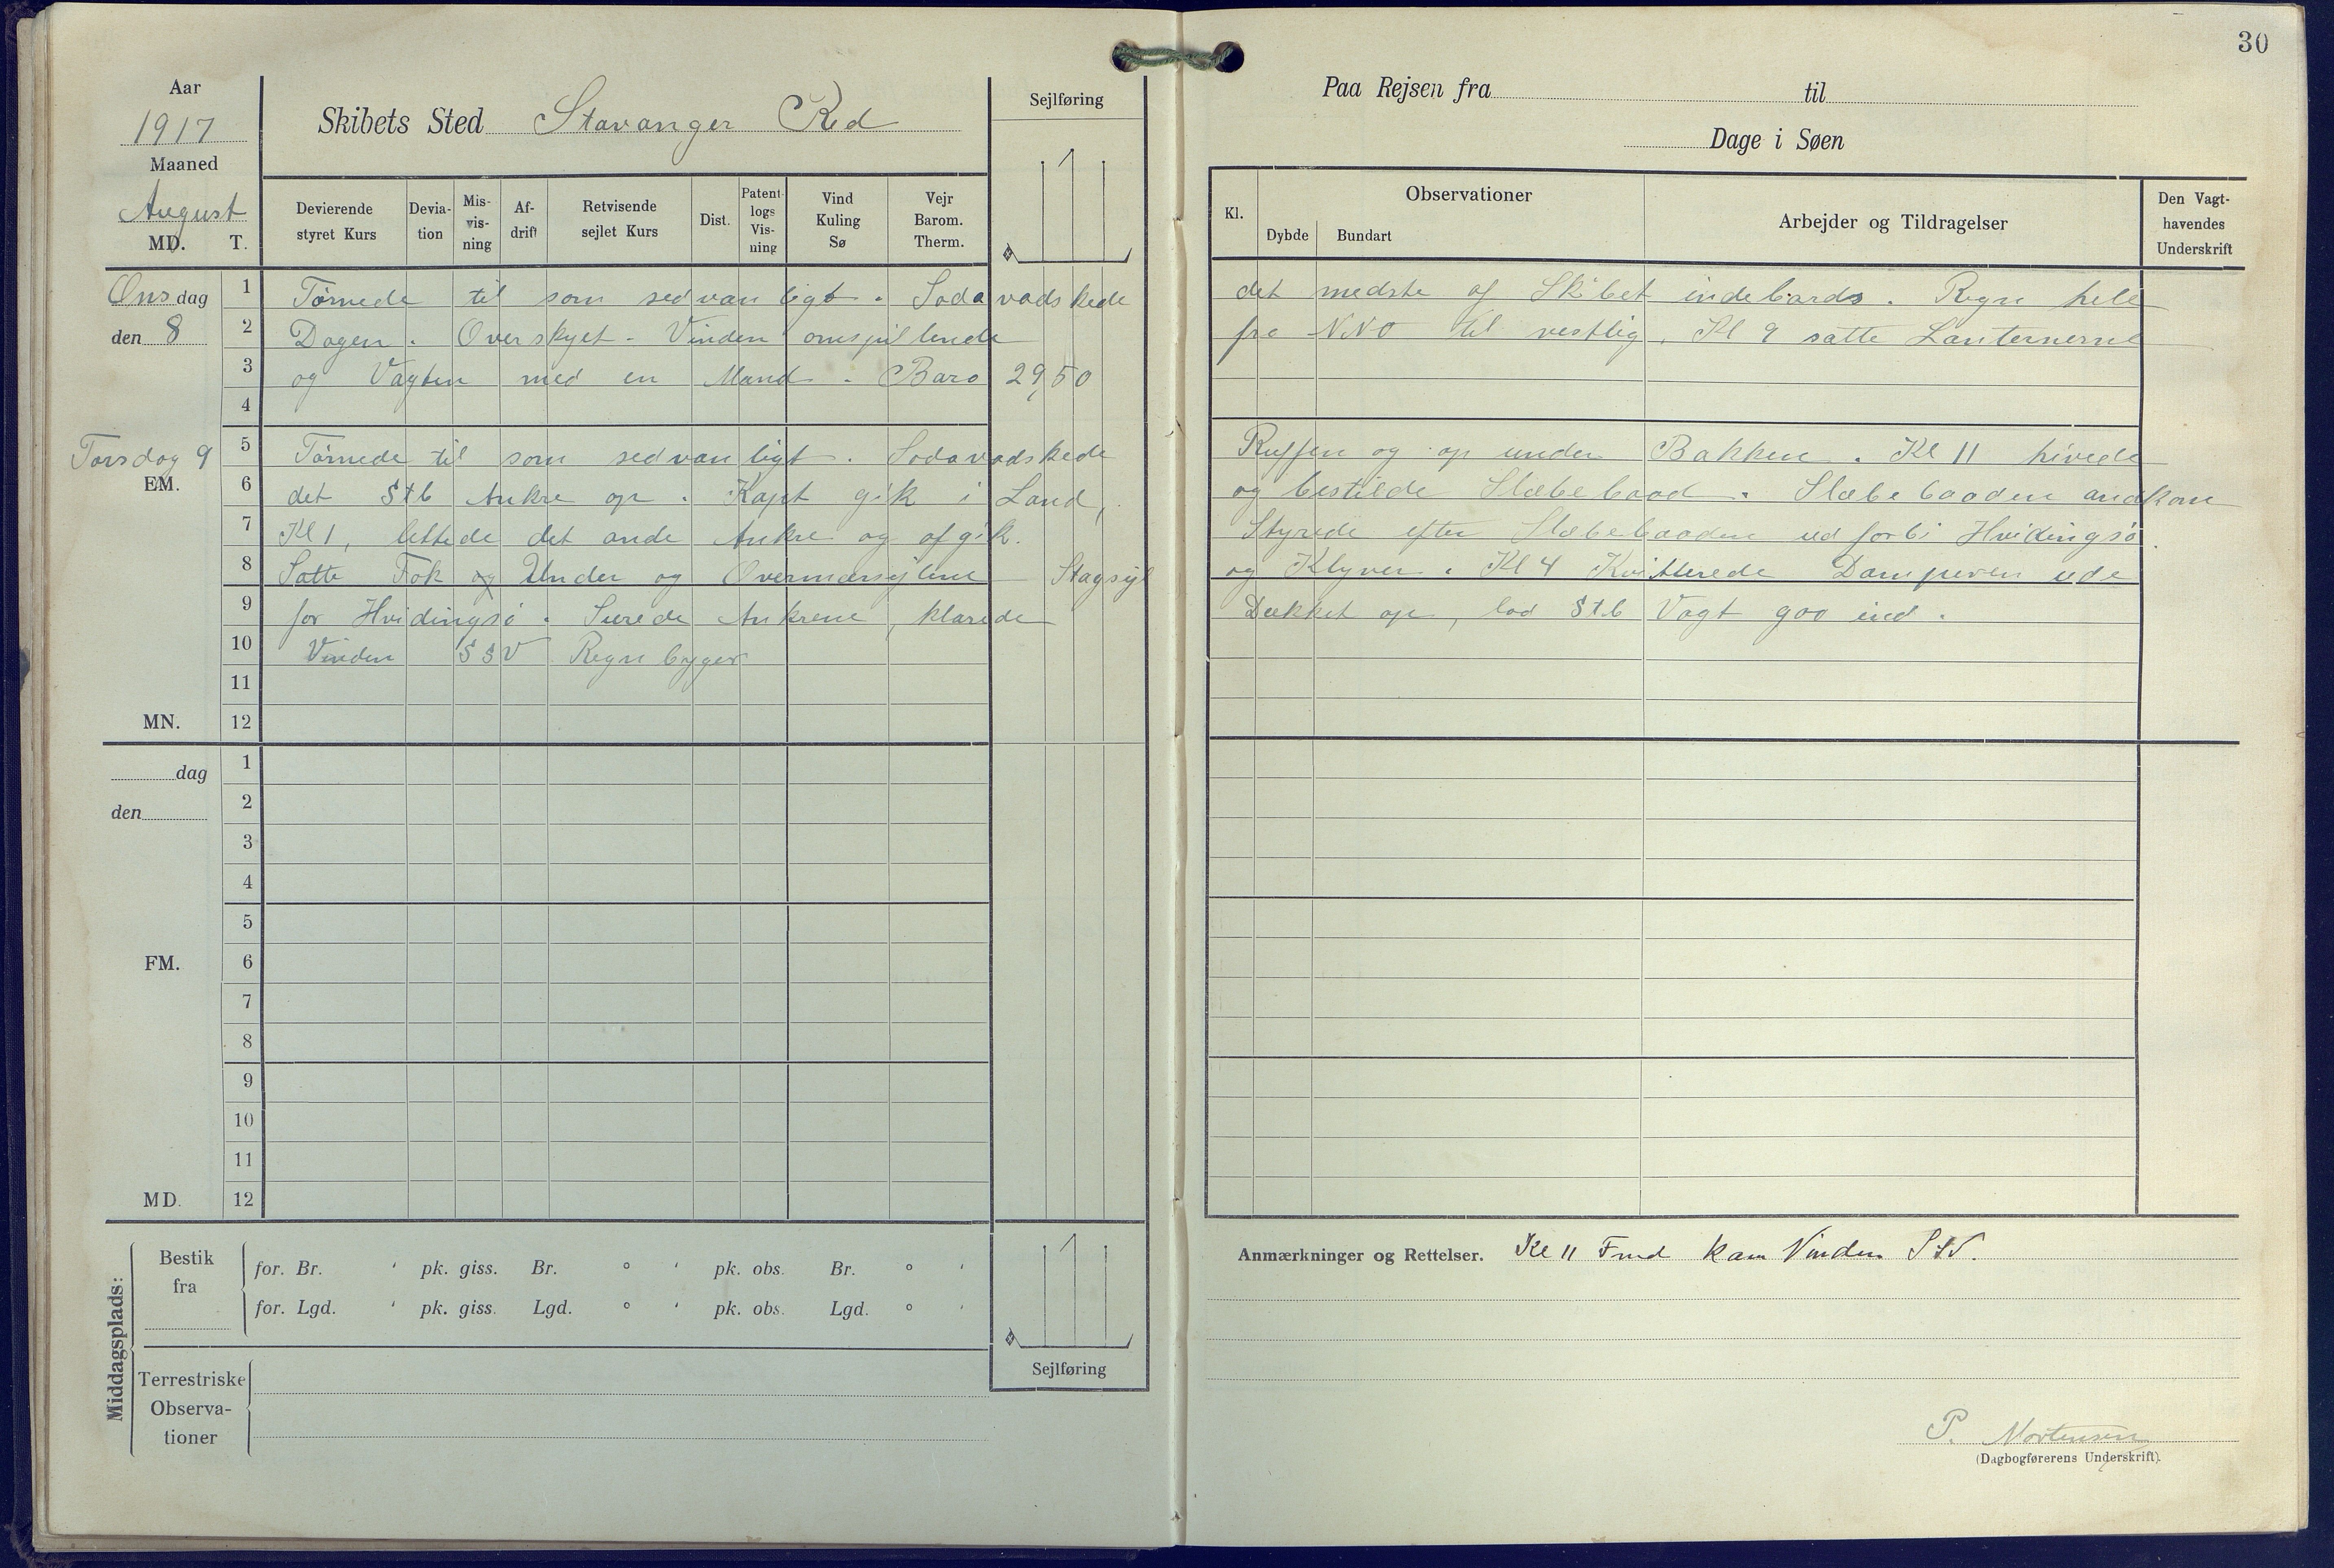 30
Aar
1917
Maaned
August
MD. T.
Skibets Sted Stavanger Red
Sejlføring
Devierende styret Kurs
Devia-tion
Mis-vis-ning
Af-drift
Retvisende sejlet Kurs
Dist.
Patent-logs Vis-ning
Vind Kuling Sø
Vejr Barom. Therm.
Paa Rejsen fra til
Dage i Søen
Kl.
Observationer
Dybde Bundart
Arbejder og Tildragelser
Den Vagt-havendes Underskrift
Onsdag 1 Törnede til som sedvanligt. Sodavadskede det medste af Skibet indebords. Regn hele
den 8 2 Dagen. Overskyet. Vinden omspillende fra NNO til vestlig. Kl 9 satte Lanternerne
3 og Vagten med en Mand. Baro 29,50
4
Torsdag 9 5 Törnede til som sedvanligt. Sodavadskede Ruffen og op under Bakken. Kl 11 hivede
EM. 6 det Stb Ankre op. Kapt gik i Land, og bestilde Slæbebaad. Slæbebaaden andkom
7 Kl 1, lettede det ande Ankre og afgik. Styrede efter Slæbebaaden ud forbi Hvidingsö.
8 Satte Fok og Under og Overmærsejlene Stagsejl og Klyver. Kl 4 Kvitterede Damperen ude
9 for Hvidingsö. Surede Ankrene, klarede Dækket op, lod Stb Vagt gaa ind.
10 Vinden SSV Regnbyger
11
MN. 12
dag 1
den 2
3
4
5
FM. 6
7
8
9
10
11
MD. 12
Middagsplads:
Bestik fra
for. Br. ' pk. giss. Br. ° ' pk. obs. Br. ° '
for. Lgd. ' pk. giss. Lgd. ° ' pk. obs. Lgd. ° '
Terrestriske Observa-tioner
Sejlføring
Anmærkninger og Rettelser. Kl 11 Fmd kam Vinden
P. Mortensen
(Dagbogførerens Underskrift).